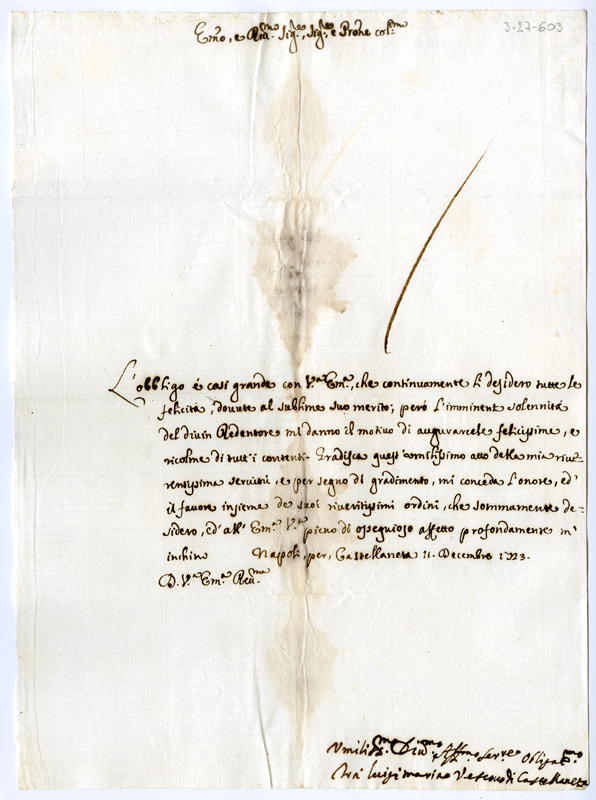 3-27-603
Emo, e Reu.mo Sig.e, Sig.e e Prone col.mo
L'obbligo é casi grande con V.a Em.a, che continuamente li desidero tutte le
felicità, dovute al sublime suo merito; però l'imminente solennità
del divin Redentore mi danno il motivo di augurarcele felicissime, e
ricolme di tutt'i contenti. Gradisca quest'umilissimo atto della mia riue-
rentissima servitù, e per segno di gradimento, mi conceda l'onore, ed'
il favore insieme de' suoi riveritissimi ordini, che sommamente de-
sidero, ed' all' Em.a V.a pieno di ossequioso affetto profondamente m'
inchino Napoli, per, Castellaneta 11. Decembre 1723.
D. V.a Em.a Reu.ma
Vmiliss.mo Diu.mo Aff.mo Ser.re Obligat.mo
Fra' Luigi maria Vescovo di Castellaneta